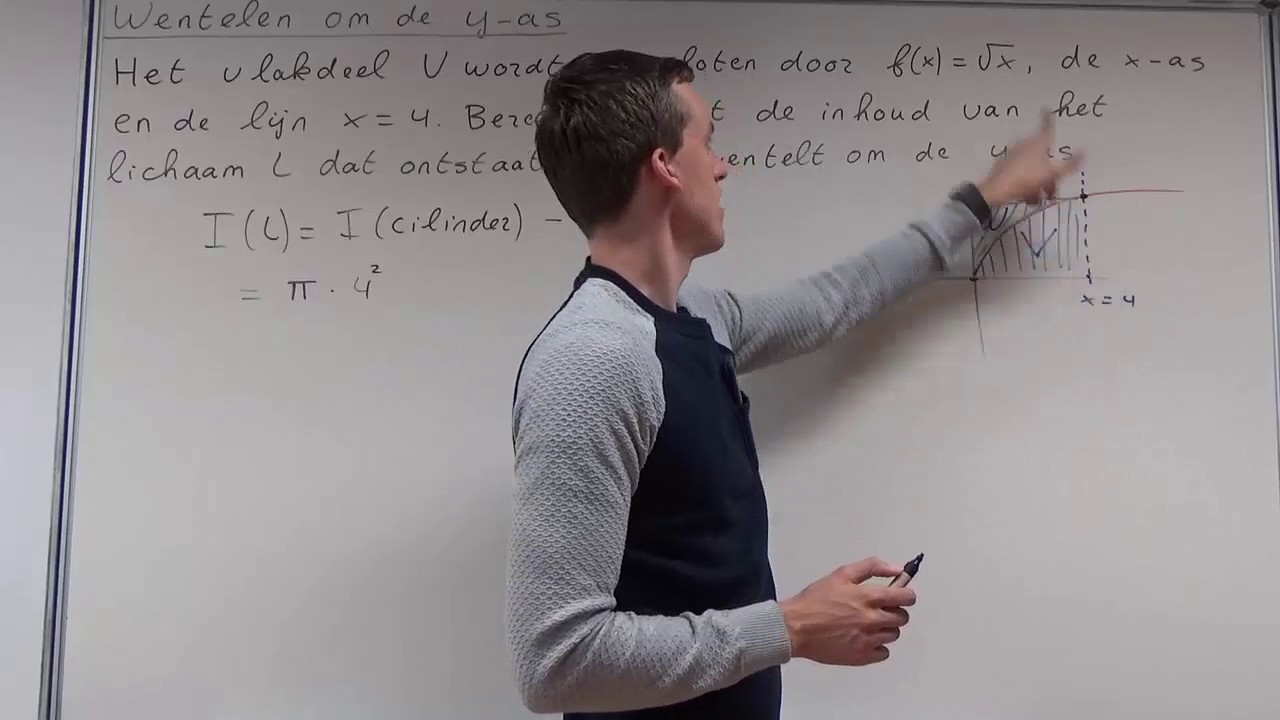 Wentelen om de y-as
Het vlakdeel V wordt door f(x) = √x, de x-as
en de lijn x = 4. de inhoud van het
lichaam L dat ontstaat om de
I(L) = I(cilinder) -
= π · 4²
V
x = 4